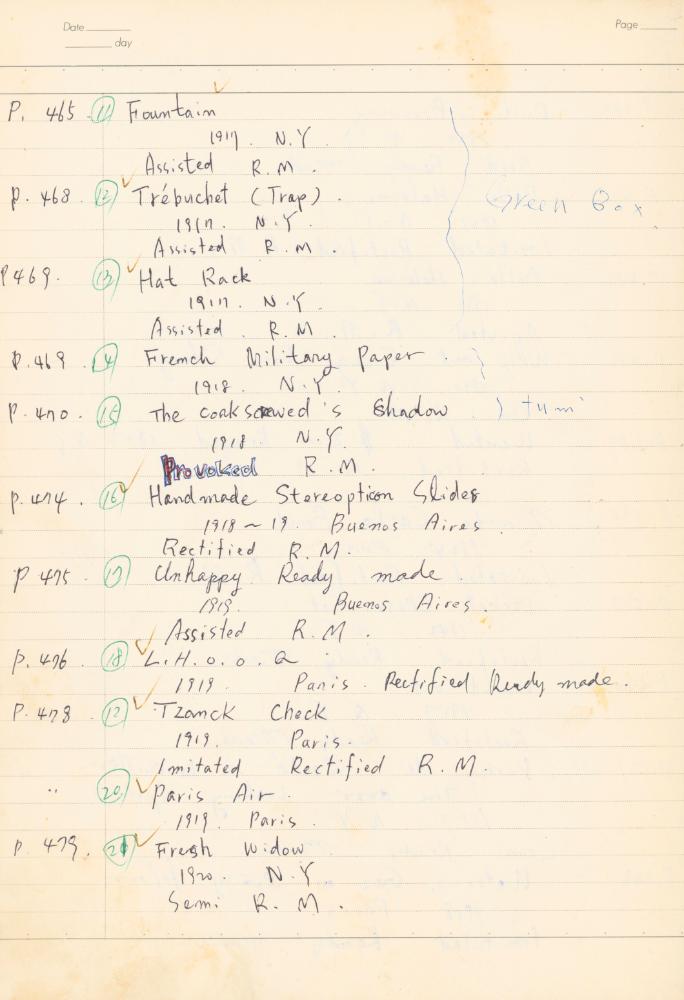 Date
day
Page
P. 465 ⑪ Fountain
1917. N.Y
Assisted R.M.
P. 468 ⑫ Trébuchet (Trap).
1917. N.Y.
Assisted R.M.
Green Box
P469. ⑬ Hat Rack
1917. N.Y.
Assisted. R.M
P. 469 14 French Military Paper
1918. N.Y
P. 470 ⑮ The coakscrewed's Shadow
1918 N.Y.
Provoked R.M.
p. 474 ⑯ Handmade Stereoption Slides
1918~19. Buenos Aires.
Rectified R.M.
P 475 ⑰ Unhappy Ready made.
1919. Buenos Aires.
Assisted R.M.
P. 476 ⑱ L.H.o.o.Q
1919. Paris. Rectified Ready made.
P. 478 Tzanck Check
1919. Paris.
Imitated Rectified R.M.
" ⑳ Paris Air.
1919. Paris.
P. 479. ㉑ Fresh Widow
1920. N.Y
Semi R.M.